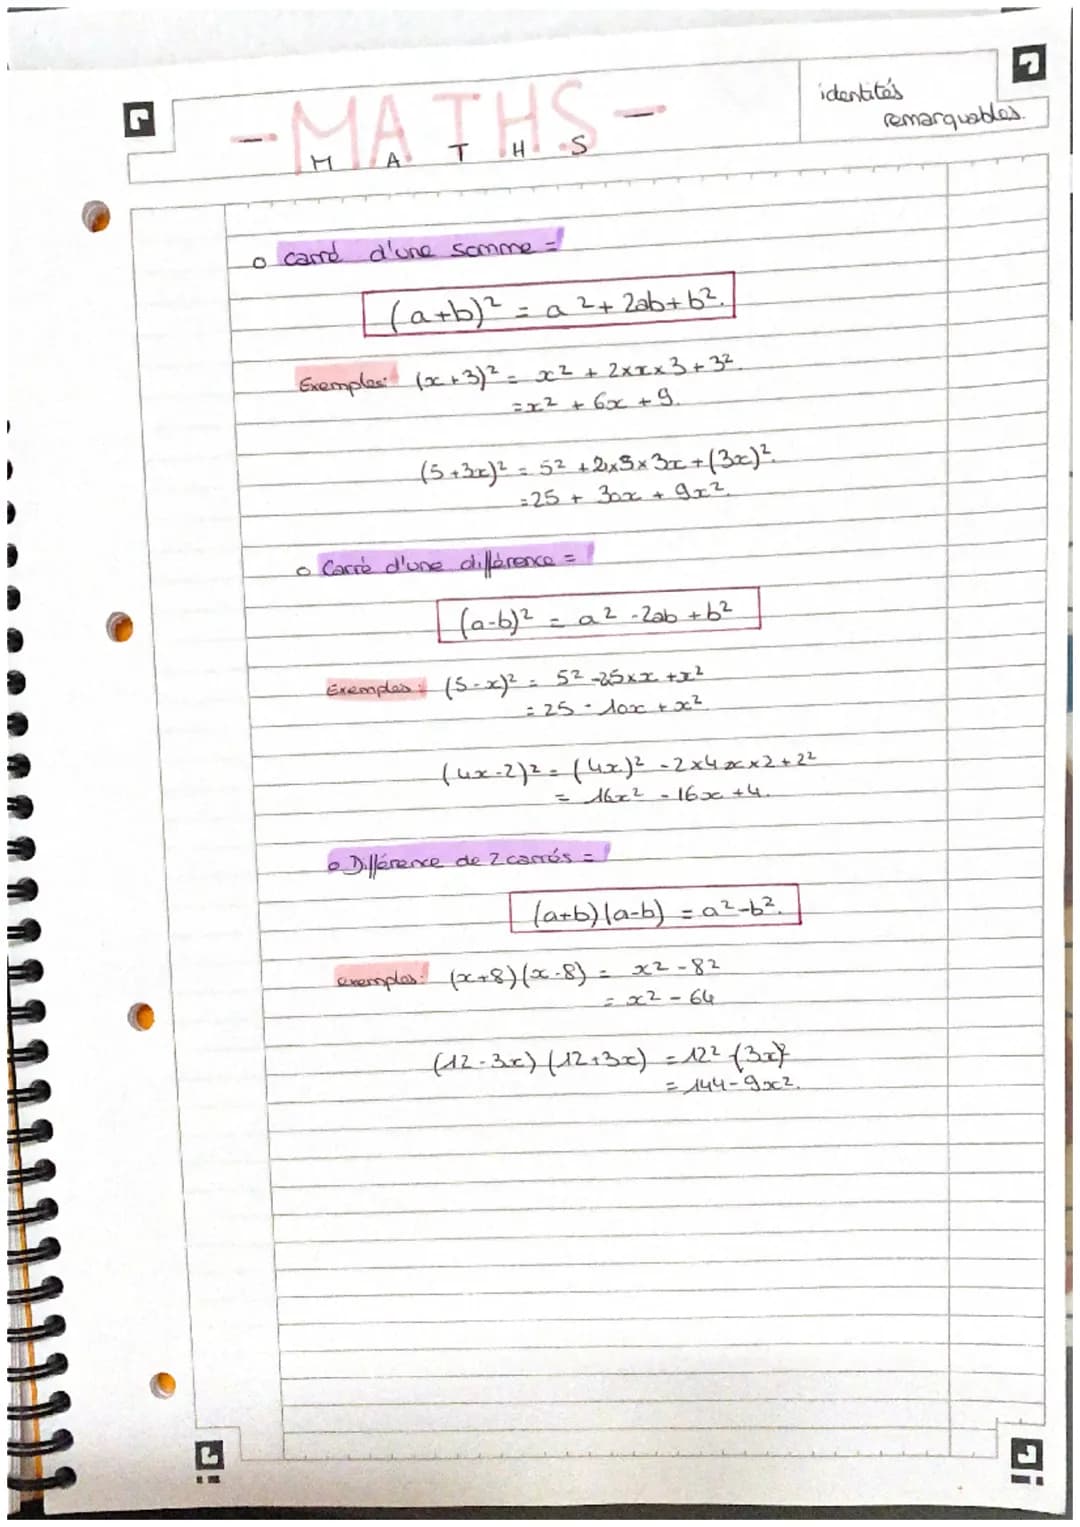 identités
remarquables.
- MATHS -
M A T H S
o carré d'une somme =
(a+b)² = a² + 2ab + b².
Exemples: (x+3)² = x² + 2×x×3 + 3².
= x² + 6x + 9.
(5+3x)² = 5² + 2×5×3x + (3x)².
= 25 + 30x + 9x².
o Carré d'une différence =
(a-b)² = a² - 2ab + b²
Exemples: (5-x)² = 5² - 25×x + x²
= 25 - 10x + x²
(4x-2)² = (4x)² - 2×4x×2 + 2²
= 16x² - 16x + 4.
o Différence de 2 carrés =
(a+b)(a-b) = a² - b².
exemples: (x+8)(x-8) = x² - 8²
= x² - 64
(12-3x)(12+3x) = 12² - (3x)²
= 144 - 9x².